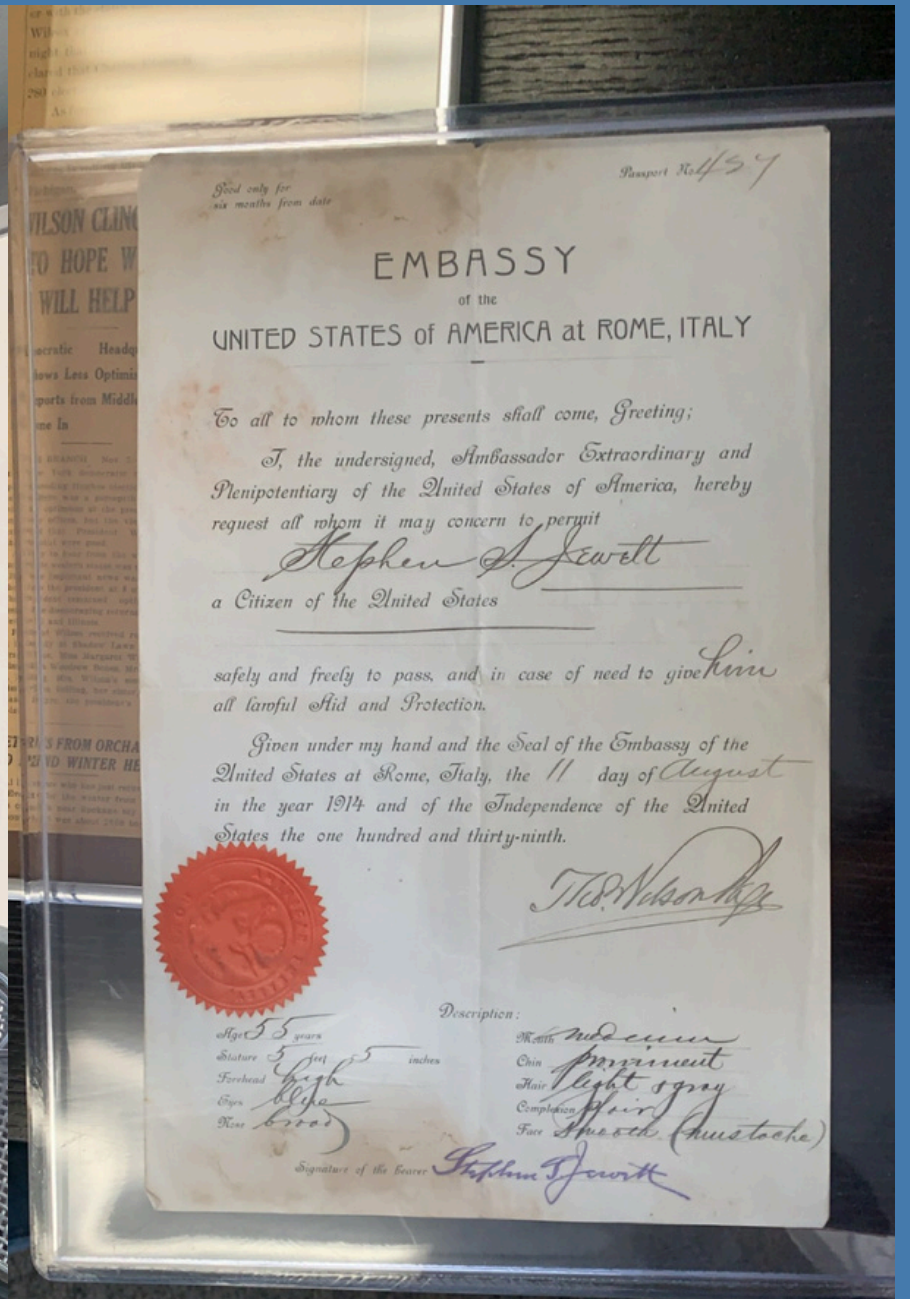 er with the
Wilson
night
clared that Charles
280
As
WILSON CLING
TO HOPE W
WILL HELP
Headq
ows Less Optimis
ports from Middle
me In
FROM ORCHA
WINTER HE
Good only for
six months from date
Passport No. 457
EMBASSY
of the
UNITED STATES of AMERICA at ROME, ITALY
To all to whom these presents shall come, Greeting;
I, the undersigned, Ambassador Extraordinary and
Plenipotentiary of the United States of America, hereby
request all whom it may concern to permit
Stephen S. Jewett
a Citizen of the United States
safely and freely to pass, and in case of need to give him
all lawful Aid and Protection.
Given under my hand and the Seal of the Embassy of the
United States at Rome, Italy, the 11 day of August
in the year 1914 and of the Independence of the United
States the one hundred and thirty-ninth.
Thos. Nelson Page
Description:
Age 55 years
Stature 5 feet 5 inches
Forehead high
Eyes blue
Nose broad
Mouth medium
Chin prominent
Hair light & gray
Complexion fair
Face smooth (mustache)
Signature of the Bearer Stephen S Jewett